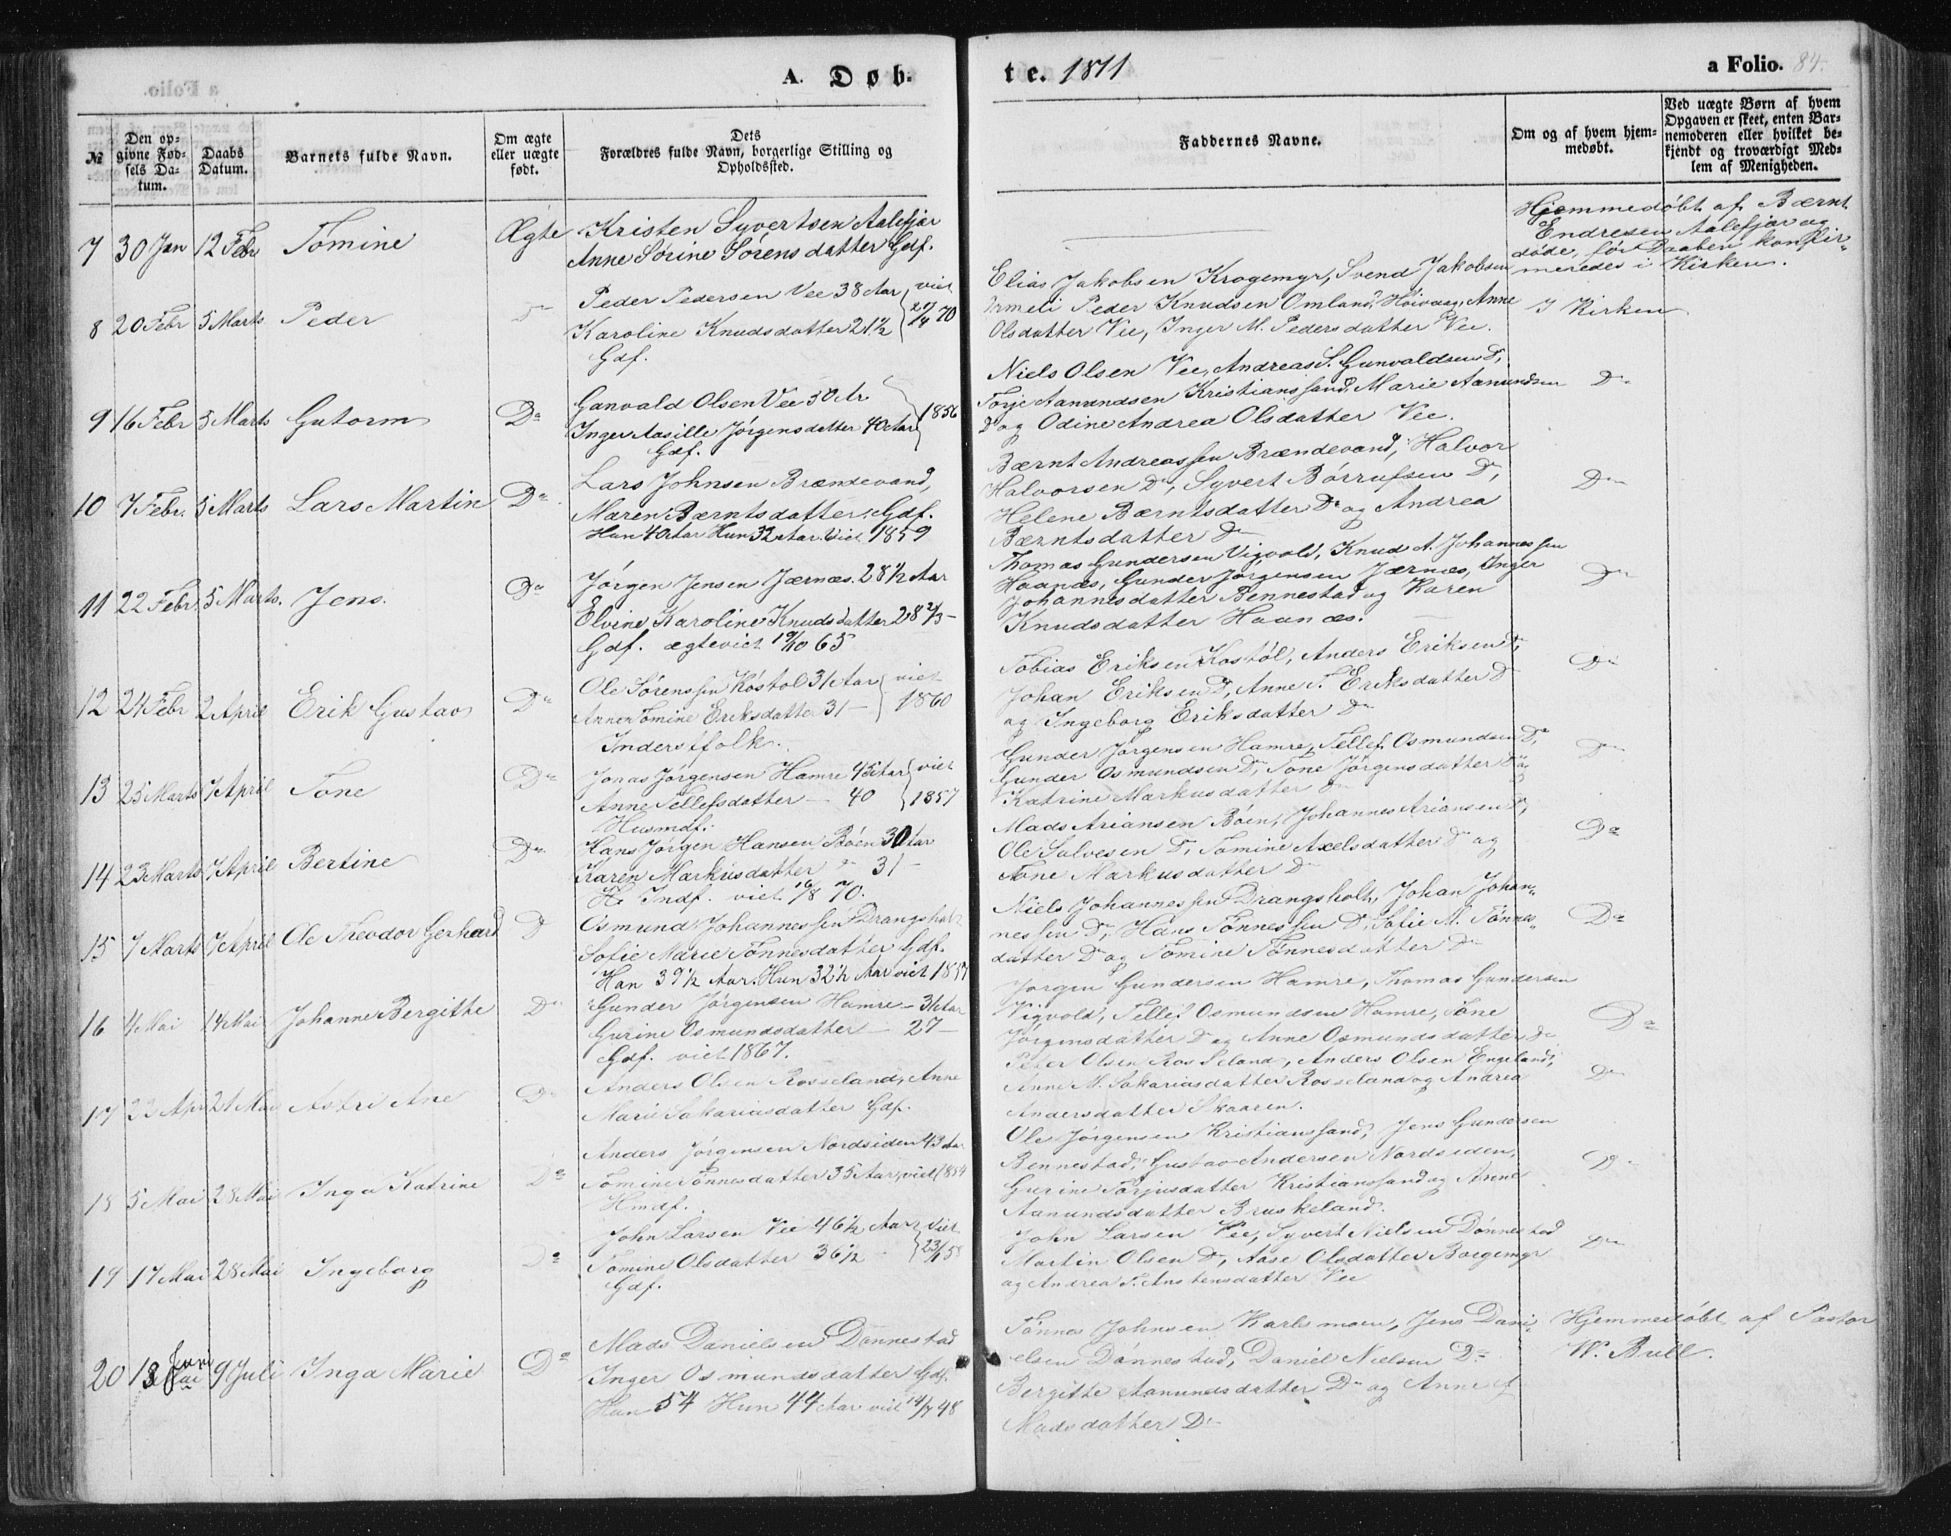 A. Døb.
te. 1871
a Folio. 84.
№
Den opgivne Fødsels Datum.
Daabs Datum.
Barnets fulde Navn.
Om ægte eller uægte født.
Dets Forældres fulde Navn, borgerlige Stilling og Opholdssted.
Faddernes Navne.
Om og af hvem hjemmedøbt.
Ved uægte Børn af hvem Opgaven er skeet, enten Barnemoderen eller hvilket bekjendt og troværdigt Medlem af Menigheden.
7 30 Jan 12 Febr Tomine Ægte Kristen Syvertsen Aalefjær
Anne Sørine Sørensdatter Gdf.
Hjemmedøbt af Bærnt
Endresen Aalefjær og
døde, før Daaben konfir-
meredes i Kirken.
8 20 Febr 5 Marts Peder Peder Pedersen Vee 38 Aar viet
Karoline Knudsdatter 21½ 70
Gdf.
Elias Jakobsen Krogemyr, Svend Jakobsen
Peder Knudsen Omland, Høivaag, Anne
Olsdatter Vee, Inger M. Pedersdatter Vee.
I Kirken
9 16 Febr 5 Marts Gutorm Do Gunvald Olsen Vee 50 Ar
Inger Aasille Jørgensdatter 40 Aar 1856
Gdf.
Niels Olsen Vee, Andreas S. Gunvaldsen Do,
Torje Aanundsen Kristianssand, Marie Aanundsen
Do og Odine Andrea Olsdatter Vee.
Do
10 7 Febr. 5 Marts Lars Martin Do Lars Johnsen Brændevand,
Maren Bærntsdatter, Gdf.
Han 40 Aar Hun 32 Aar. Viet 1859
Bærnt Andreassen Brændevand, Halvor
Halvorsen Do, Syvert Børrufsen Do,
Helene Bærntsdatter Do og Andrea
Bærntsdatter Do
Do
11 22 Febr 5 Marts. Jens. Do Jørgen Jensen Jærnæs. 28½ Aar
Elvine Karoline Knudsdatter 28 2/3 -
Gdf. ægteviet 19/10 65
Thomas Gundersen Vigvold, Knud A. Johannessen
Haanæs, Gunder Jørgensen Jærnæs, Inger
Johannesdatter Bennestad og Karen
Knudsdatter Haanæs.
Do
12 24 Febr 2 April Erik Gustav Do Ole Sørenssen Kostøl 31 Aar viet
Annen Tomine Eriksdatter 31 - 1860
Inderstfolk.
Tobias Eriksen Kostøl, Anders Eriksen Do,
Johan Eriksen Do, Anne T. Eriksdatter Do
og Ingeborg Eriksdatter Do
Do
13 25 Marts 7 April Tone Do Jonas Jørgensen Hamre 45 Aar viet
Anne Tellefsdatter - 40 1857
Husmdf.
Gunder Jørgensen Hamre, Tellef Osmundsen Do,
Gunder Osmundsen Do, Tone Jørgensdatter Do og
Katrine Markusdatter Do
Do
14 23 Marts 7 April Bertine Do Hans Jørgen Hansen Bøen 30 Aar
Karen Markusdatter Do 31 -
Indf. viet 16/8 70.
Mads Ariansen Bøen, Johannes Ariansen Do,
Ole Salvesen Do, Tomine Axelsdatter Do og
Tone Markusdatter Do
Do
15 7 Marts 7 April Ole Theodor Gerhard Do Osmund Johannessen Drangsholt
Sofie Marie Tønnesdatter Gdf.
Han 39½ Aar. Hun 32½ Aar viet 1857
Niels Johannessen Drangsholt, Johan Johan-
nessen Do, Hans Tønnessen Do, Sofie M. Tønnes-
datter Do og Tomine Tønnesdatter Do
Do
16 4 Mai 14 Mai Johanne Bergitte Do Gunder Jørgensen Hamre - 31 Aar
Gurine Osmundsdatter - 27 -
Gdf. viet 1867.
Jørgen Gundersen Hamre, Thomas Gundersen
Vigvold, Tellef Osmundsen Hamre, Tone
Jørgensdatter Do og Anne Osmundsdatter Do
Do
17 22 Apr 21 Mai Astri Ane Do Anders Olsen Rosseland, Anne
Marie Sakariasdatter Gdf.
Peder Olsen Rosseland, Anders Olsen Engeland,
Anne M. Sakariasdatter Rosseland og Andrea
Andersdatter Skaaren.
Do
18 5 Mai 28 Mai Inga Katrine Do Anders Jørgensen Nordsiden 43 Aar
Tomine Tønnesdatter 35 Aar, viet 1854
Hmdf.
Ole Jørgensen Kristianssand, Jens Gundersen
Bennestad, Gustav Andersen Nordsiden,
Gurine Torjusdatter Kristianssand og Anne
Aanundsdatter Bruskeland.
Do
19 17 Mai 28 Mai Ingeborg Do John Larsen Vee 46½ Aar viet
Tomine Olsdatter 36½ 58
Gdf.
John Larsen Vee, Syvert Nielsen Dønnestad
Martin Olsen Do, Aase Olsdatter Borgemyr
og Andrea T. Anstensdatter Vee
Do
20 13 Juni 9 Juli Inga Marie Do Mads Danielsen Dønnestad
Inger Osmundsdatter Gdf.
Han 54 Hun 44 Aar viet 14/7 48
Tønnes Johnsen Karlsmoen, Jens Dani-
elsen Dønnestad, Daniel Nielsen Do
Bergitte Aanundsdatter Do og Anne
Madsdatter Do
Hjemmedøbt af Pastor
W. Bull.